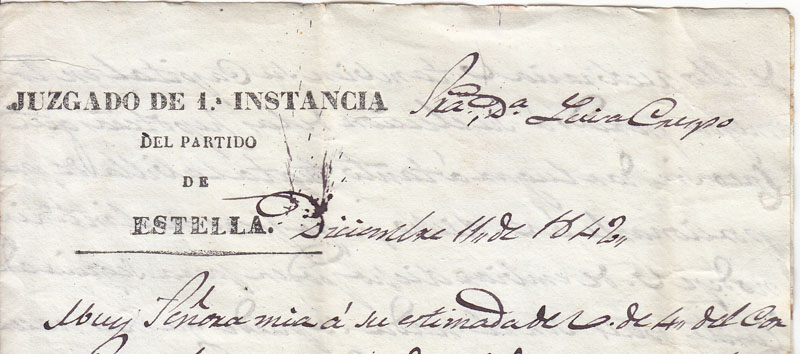 JUZGADO DE 1.ª INSTANCIA
DEL PARTIDO
DE
ESTELLA.
Sra. Dª Luisa Crespo
Diciembre 11, de 1842,
Muy Señora mia á su estimada de V. de 4, del Cor